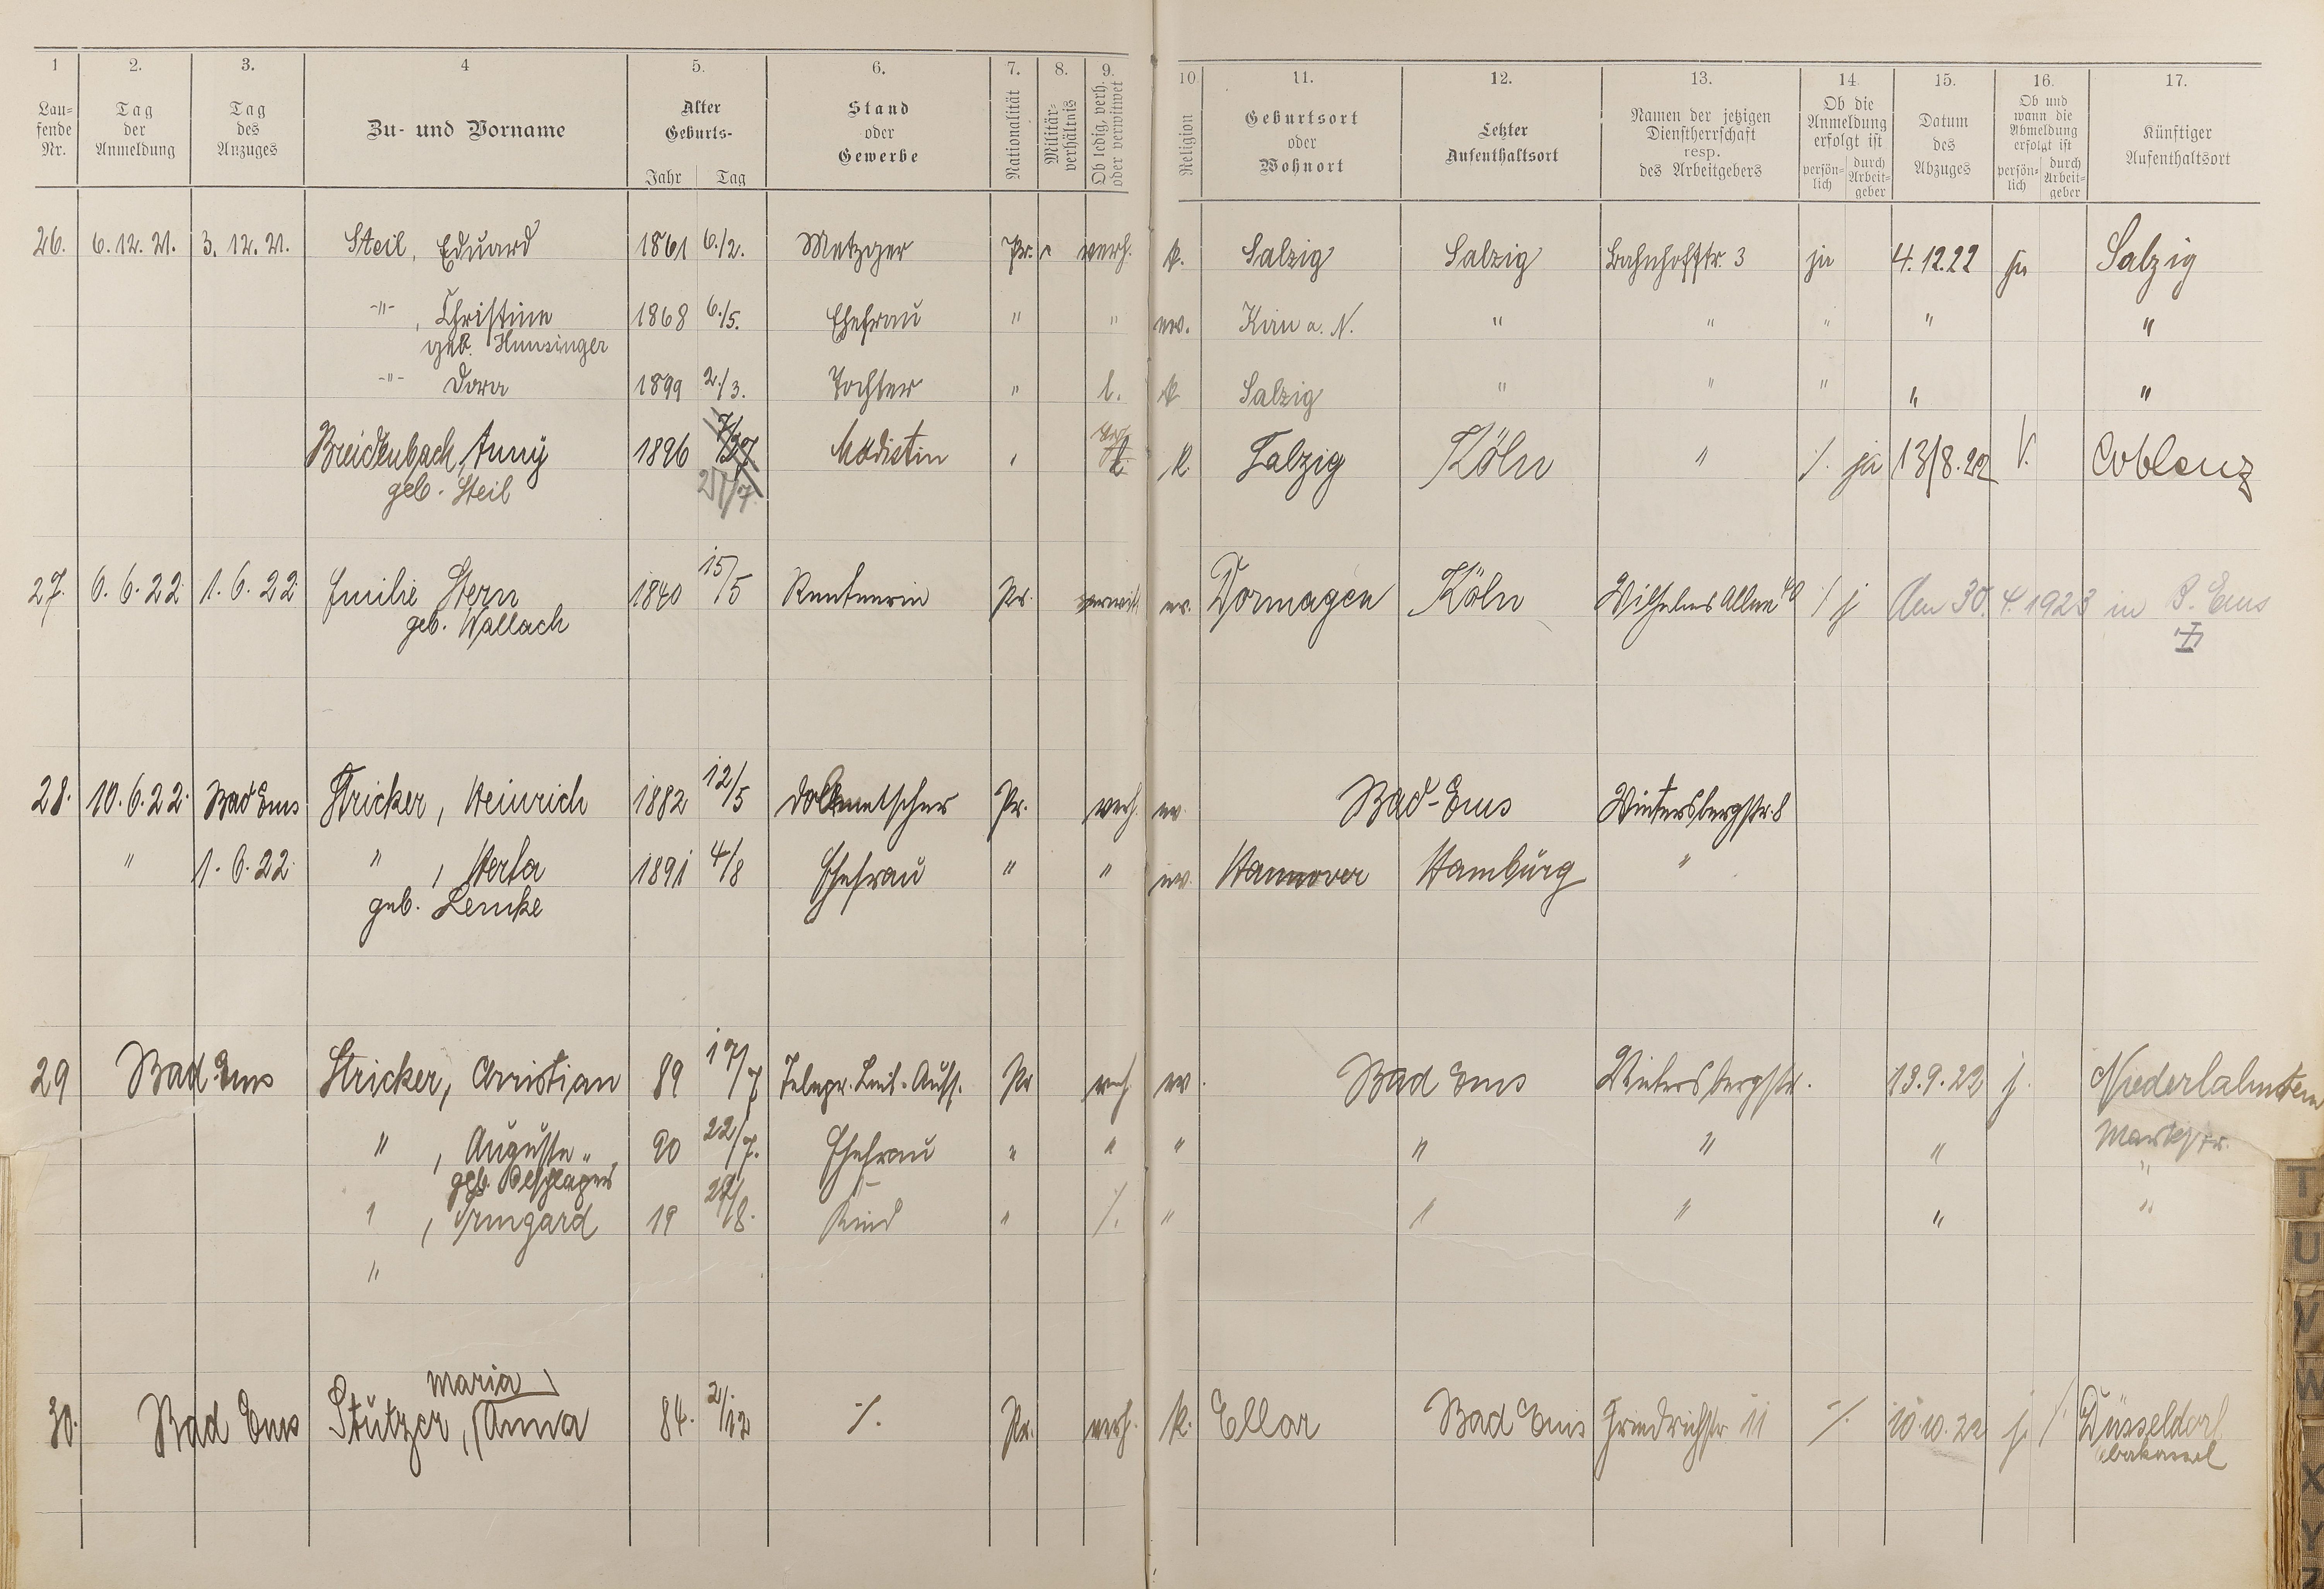 1 2. 3. 4 5. 6. 7. 8. 9. 10 11. 12. 13. 14. 15. 16. 17.
Lau-
fende
Nr.
Tag
der
Anmeldung
Tag
des
Anzuges
Zu- und Vorname
Alter
Geburts-
Jahr Tag
Stand
oder
Gewerbe
Nationalität
Militär-
verhältnis
Ob ledig, verh.
oder verwitwet
Religion
Geburtsort
oder
Wohnort
Letzter
Aufenthaltsort
Namen der jetzigen
Dienstherrschaft
resp.
des Arbeitgebers
Ob die
Anmeldung
erfolgt ist
persön-
lich
durch
Arbeit-
geber
Datum
des
Abzuges
Ob und
wann die
Abmeldung
erfolgt ist
persön-
lich
durch
Arbeit-
geber
Künftiger
Aufenthaltsort
26. 6.12.21. 3.12.21. Steil, Eduard 1861 6./2. Metzger Pr. verh. k. Salzig Salzig Bahnhofstr. 3 ja 4.12.22 ja Salzig
-"- , Christine 1868 6./5. Ehefrau " " ev. Kirn a. N. " " " " "
geb. Hunsinger
-"- Dora 1899 2./3. Tochter " l. k. Salzig " " " " "
Breidenbach, Anny 1896 7/27 Modistin " l. k. Salzig Köln " /. ja 13/8.22 V. Coblenz
geb. Steil 27/7.
27. 6.6.22. 1.6.22. Emilie Stern 1840 15/5 Rentnerin Pr. verwit. ev. Dormagen Köln Wilhelms Allee / j Am 30.4.1923 in B. Ems
geb. Wallach
28. 10.6.22. Bad Ems Stricker, Heinrich 1882 12/5 Dolmetscher Pr. verh. ev. Bad-Ems Wintersbergstr. 8
" 1.6.22. " , Herta 1891 4/8 Ehefrau " " ev. Hannover Hamburg "
geb. Lemke
29 Bad Ems Stricker, Christian 89 17/7 Telegr. Leit.-Aufs. Pr verh ev. Bad Ems Wintersbergstr. 13.9.22 j. Niederlahnstein
" , Auguste " 90 22/7. Ehefrau " " " " " " Marktstr.
geb.
" , Irmgard 19 /8. Kind " /. " " " " "
"
Maria
30. Bad Ems Stützer, (Anna 84. 2/12 /. Pr. verh. k. Ellar Bad Ems Friedrichstr 11 /. 10.10.22 j. /. Düsseldorf
Oberkassel
T
U
V
W
X
Y
Z